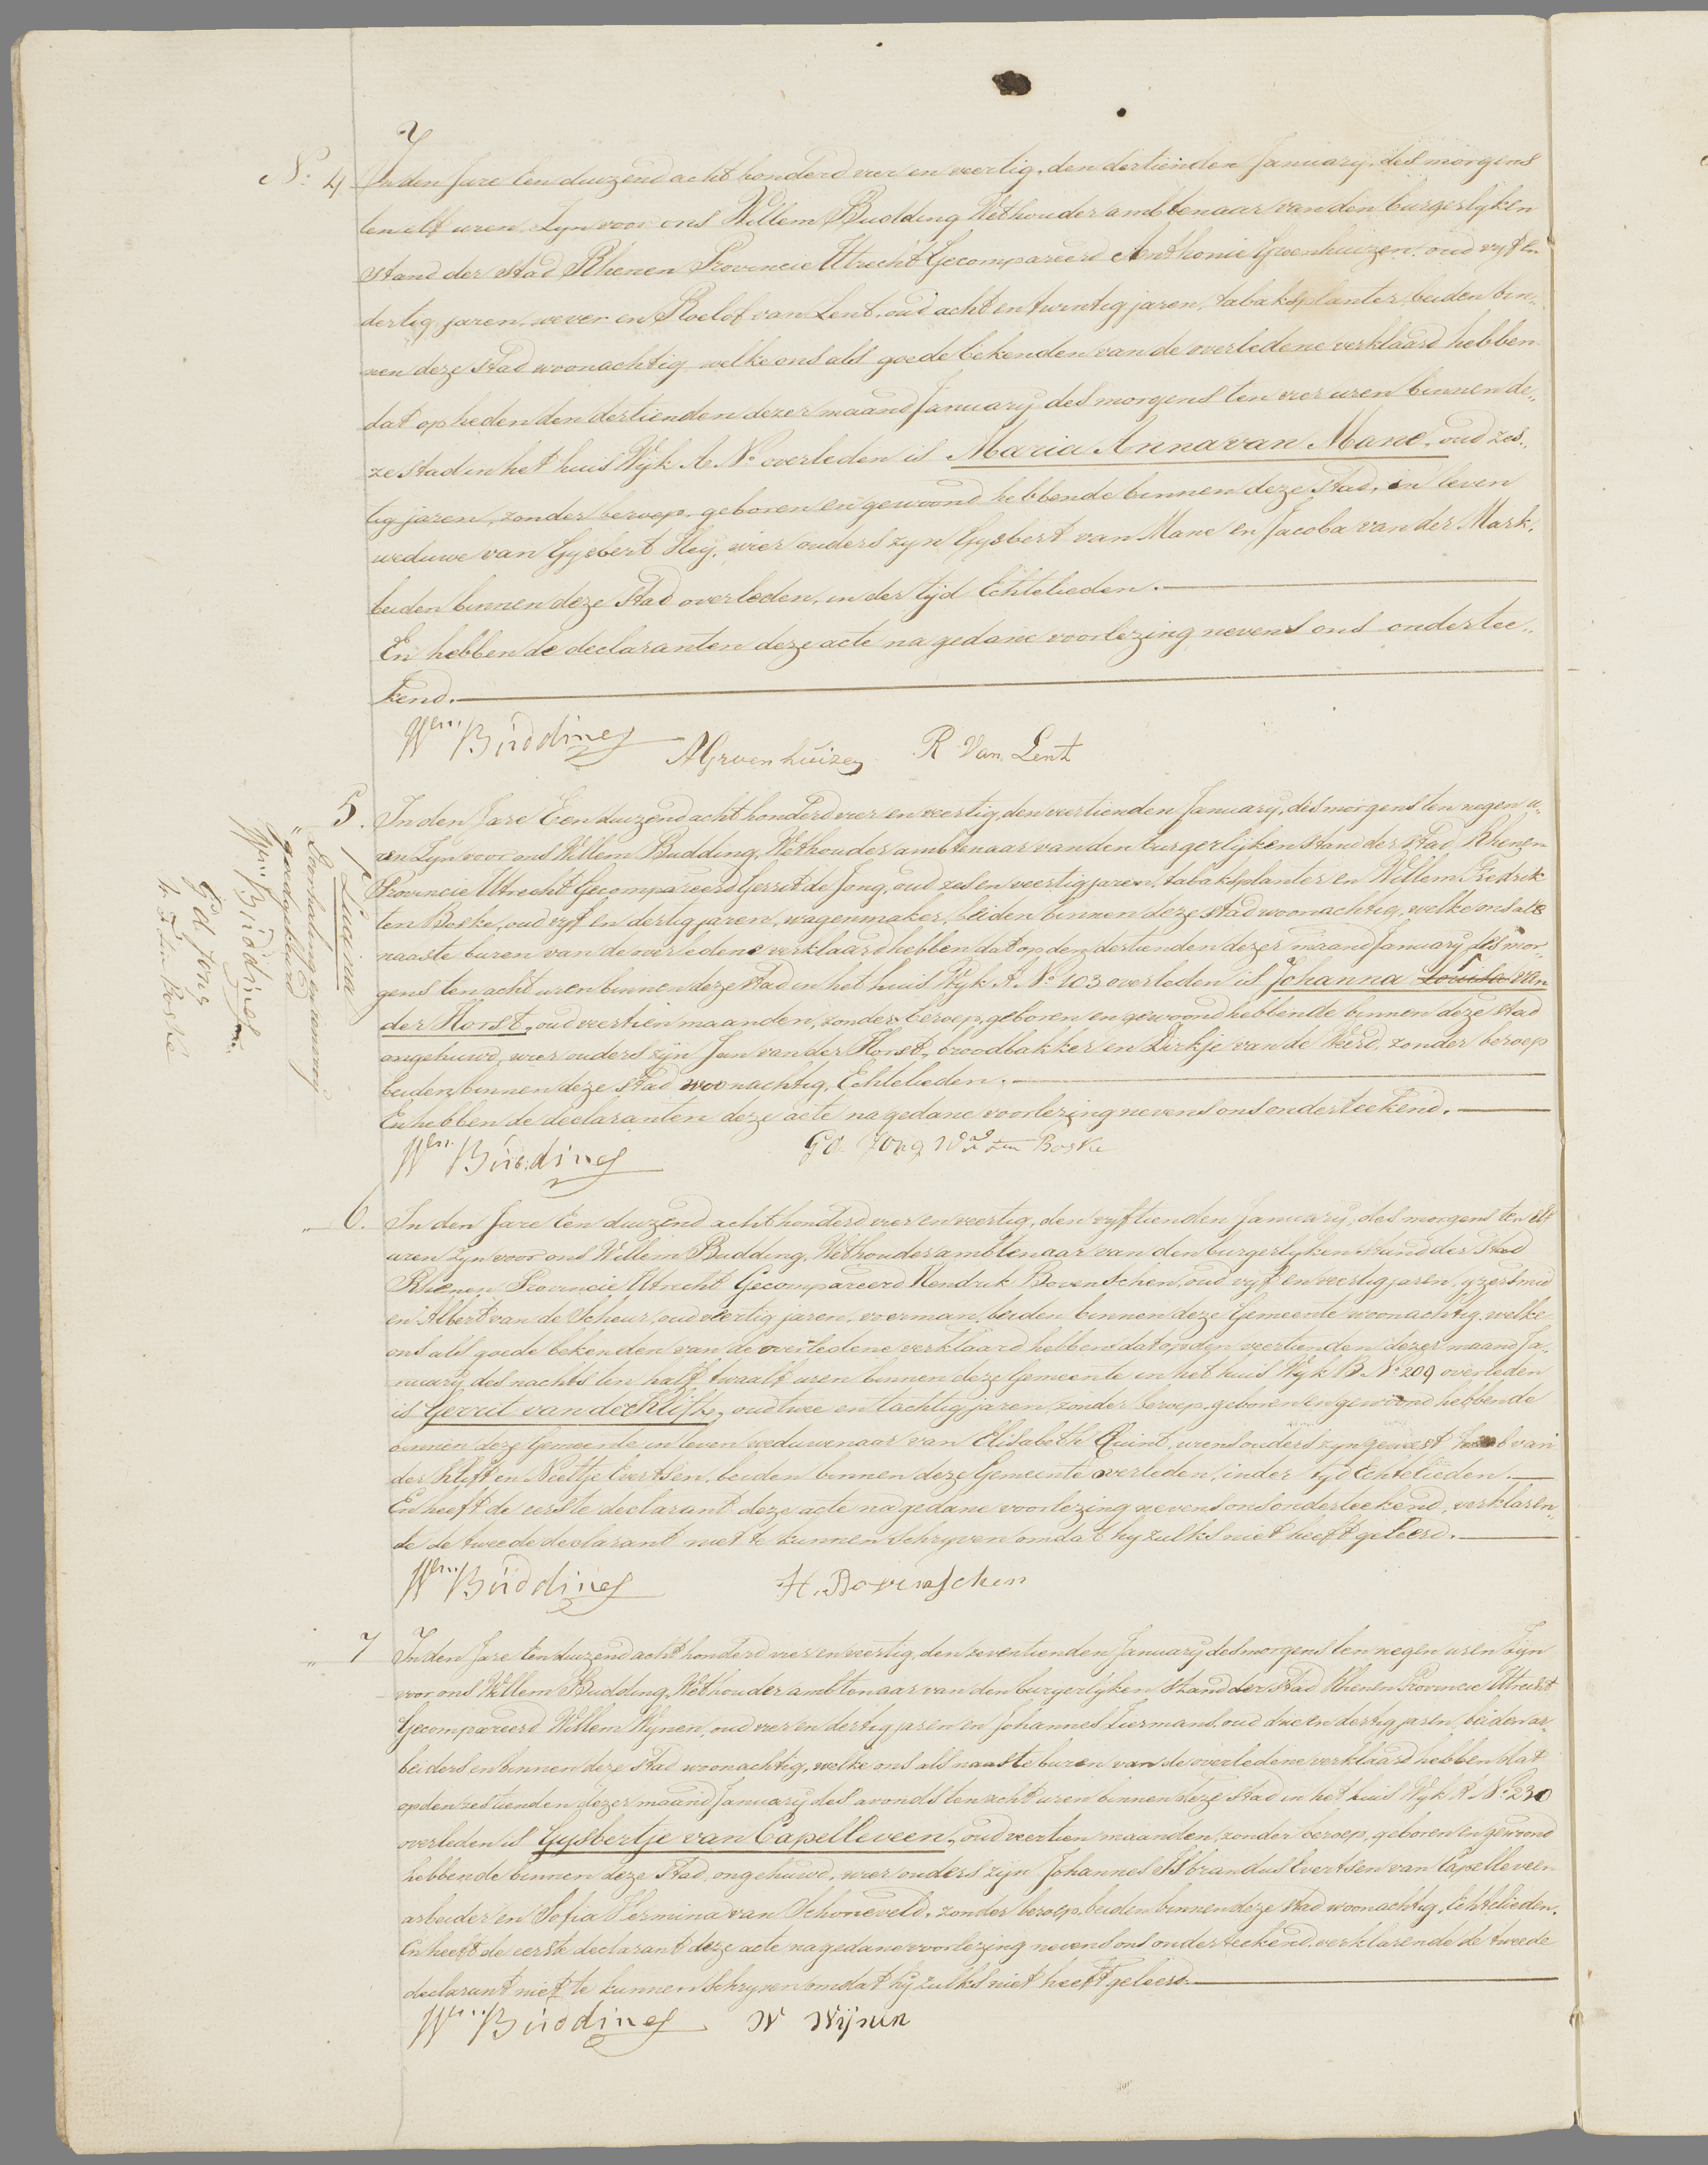 No. 4 In den Jare Een duizend acht honderd vier en veertig, den dertienden January, des morgens
ten elf uren, Zyn voor ons Willem Budding Wethouder ambtenaar van den burgerlyken
stand der stad Rhenen Provincie Utrecht Gecompareerd Anthonie Groenhuizen, oud vyf en
dertig jaren, wever en Roelof van Lent, oud acht en twintig jaren, tabaksplanter, beiden bin„
nen deze stad woonachtig welke ons als goede bekenden van de overledene verklaard hebben
dat op heden den dertienden dezer maand January des morgens ten vier uren binnen de„
ze stad in het huis Wyk A No. overleden is Maria Anna van Mane, oud zes„
tig jaren, zonder beroep, geboren en gewoond hebbende binnen deze stad, in leven
weduwe van Gysbert Hey, wier ouders zyn Gysbert van Mane en Jacoba van der Mark,
beiden binnen deze stad overleden, in der tyd Echtelieden.
En hebben de declaranten deze acte na gedane voorlezing nevens ons ondertee„
kend.
Wem Budding A Groenhuizen R Van Lent
„ 5. In den Jare Een duizend acht honderd vier en veertig, den veertienden January, des morgens ten negen u„
ren Zyn voor ons Willem Budding, Wethouder ambtenaar van den burgerlyken stand der stad Rhenen
Provincie Utrecht Gecompareerd Gerrit de Jong, oud zes en veertig jaren, tabaksplanter en Willem Fredrik
ten Boske, oud vyf en dertig jaren, wagenmaker, beiden binnen deze stad woonachtig, welke ons als
naaste buren van de overledene verklaard hebben dat op den dertienden dezer maand January des mor„
gens ten acht uren binnen deze stad in het huis Wyk A No. 103 overleden is Johanna Louisa van
der Horst, oud veertien maanden, zonder beroep, geboren en gewoond hebbende binnen deze stad
ongehuwd, wier ouders zyn Jan van der Horst, broodbakker en Dirkje van de Weerd, zonder beroep
beiden binnen deze stad woonachtig, Echtelieden.
En hebben de declaranten deze acte na gedane voorlezing nevens ons onderteekend.
Wem Budding G d Jong W F ten Boske
Lucina
Doorhaling en renvooy
goedgekeurd
Wem Budding
G d Jong
W F ten Boske
„ 6. In den Jare Een duizend acht honderd vier en veertig, den vyftienden January, des morgens ten elf
uren zyn voor ons Willem Budding, Wethouder ambtenaar van den burgerlyken stand der stad
Rhenen Provincie Utrecht Gecompareerd Hendrik Bovenschen, oud vyf en veertig jaren, yzersmid
en Albert van de Scheur, oud veertig jaren, voerman, beiden binnen deze Gemeente woonachtig, welke
ons als goede bekenden van de overledene verklaard hebben dat op den veertienden dezer maand Ja„
nuary des nachts ten half twaalf uren binnen deze Gemeente in het huis Wyk B No. 209 overleden
is Gerrit van der Klift, oud twee en tachtig jaren, zonder beroep, geboren en gewoond hebbende
binnen deze Gemeente in leven weduwenaar van Elisabeth Quint, wiens ouders zyn geweest van
der Klift en Neeltje Evertsen, beiden binnen deze Gemeente overleden, in der tyd Echtelieden.
En heeft de eerste declarant deze acte na gedane voorlezing nevens ons onderteekend, verklaren„
de de tweede declarant niet te kunnen schryven omdat hy zulks niet heeft geleerd.
Wem Budding H. Bovenschen
„ 7 In den Jare Een duizend acht honderd vier en veertig, den zeventienden January des morgens ten negen uren Zyn
voor ons Willem Budding, Wethouder ambtenaar van den burgerlyken stand der stad Rhenen Provincie Utrecht
Gecompareerd Willem Wynen, oud vier en dertig jaren en Johannes Ziermans, oud drie en dertig jaren, beiden ar„
beiders en binnen deze stad woonachtig, welke ons als naaste buren van de overledene verklaard hebben dat
op den zestienden dezer maand January des avonds ten acht uren binnen deze stad in het huis Wyk A No. 230
overleden is Gysbertje van Capelleveen, oud veertien maanden, zonder beroep, geboren en gewoond
hebbende binnen deze stad, ongehuwd, wier ouders zyn Johannes Isbrandus Evertsen van Capelleveen
arbeider en Sofia Hermina van Schoneveld, zonder beroep, beiden binnen deze stad woonachtig, Echtelieden.
En heeft de eerste declarant deze acte na gedane voorlezing nevens ons onderteekend, verklarende de tweede
declarant niet te kunnen schryven omdat hy zulks niet heeft geleerd.
Wem Budding W Wijnen